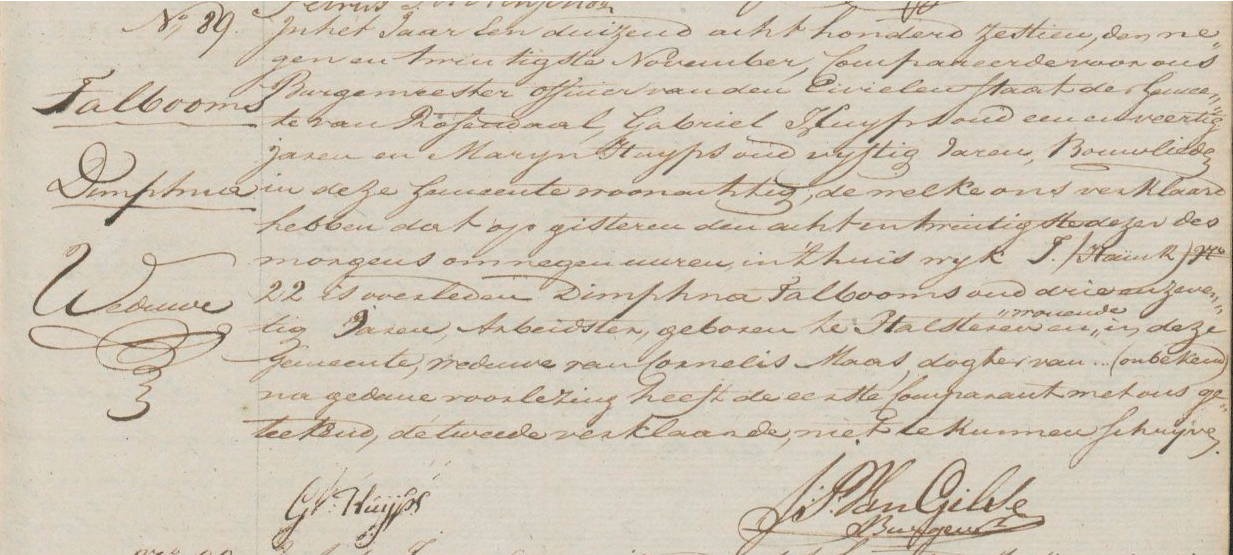 No 89.
Talbooms
Dimphna
Weduwe
In het Jaar Een duizend acht honderd zestien, den ne„
gen en twintigste November, Compareerde voor ons
Burgemeester officier van den Civielen Staat der Gemee„
te van Rosendaal, Gabriel Huijps oud een en veertig
Jaren en Maryn Huijps oud vyftig Jaren, Bouwliede
in deze Gemeente woonachtig, de welke ons verklaard
hebben dat op gisteren den acht en twintigste dezer des
morgens om negen uuren, in 't huis wyk T. No
22 is overleden Dimphna Talbooms oud drie en zeven„
tig Jaren, Arbeidster, geboren te Halsteren en „wonende„ in deze
Gemeente, weduwe van Cornelis Maas, dogter van ... (onbekend)
na gedane voorlezing heeft de eerste Comparant met ons ge„
teekend, de tweede verklaarde, niet te kunnen schryve.
Gb. Huijps
J:P: Van Gilse
Burgemr